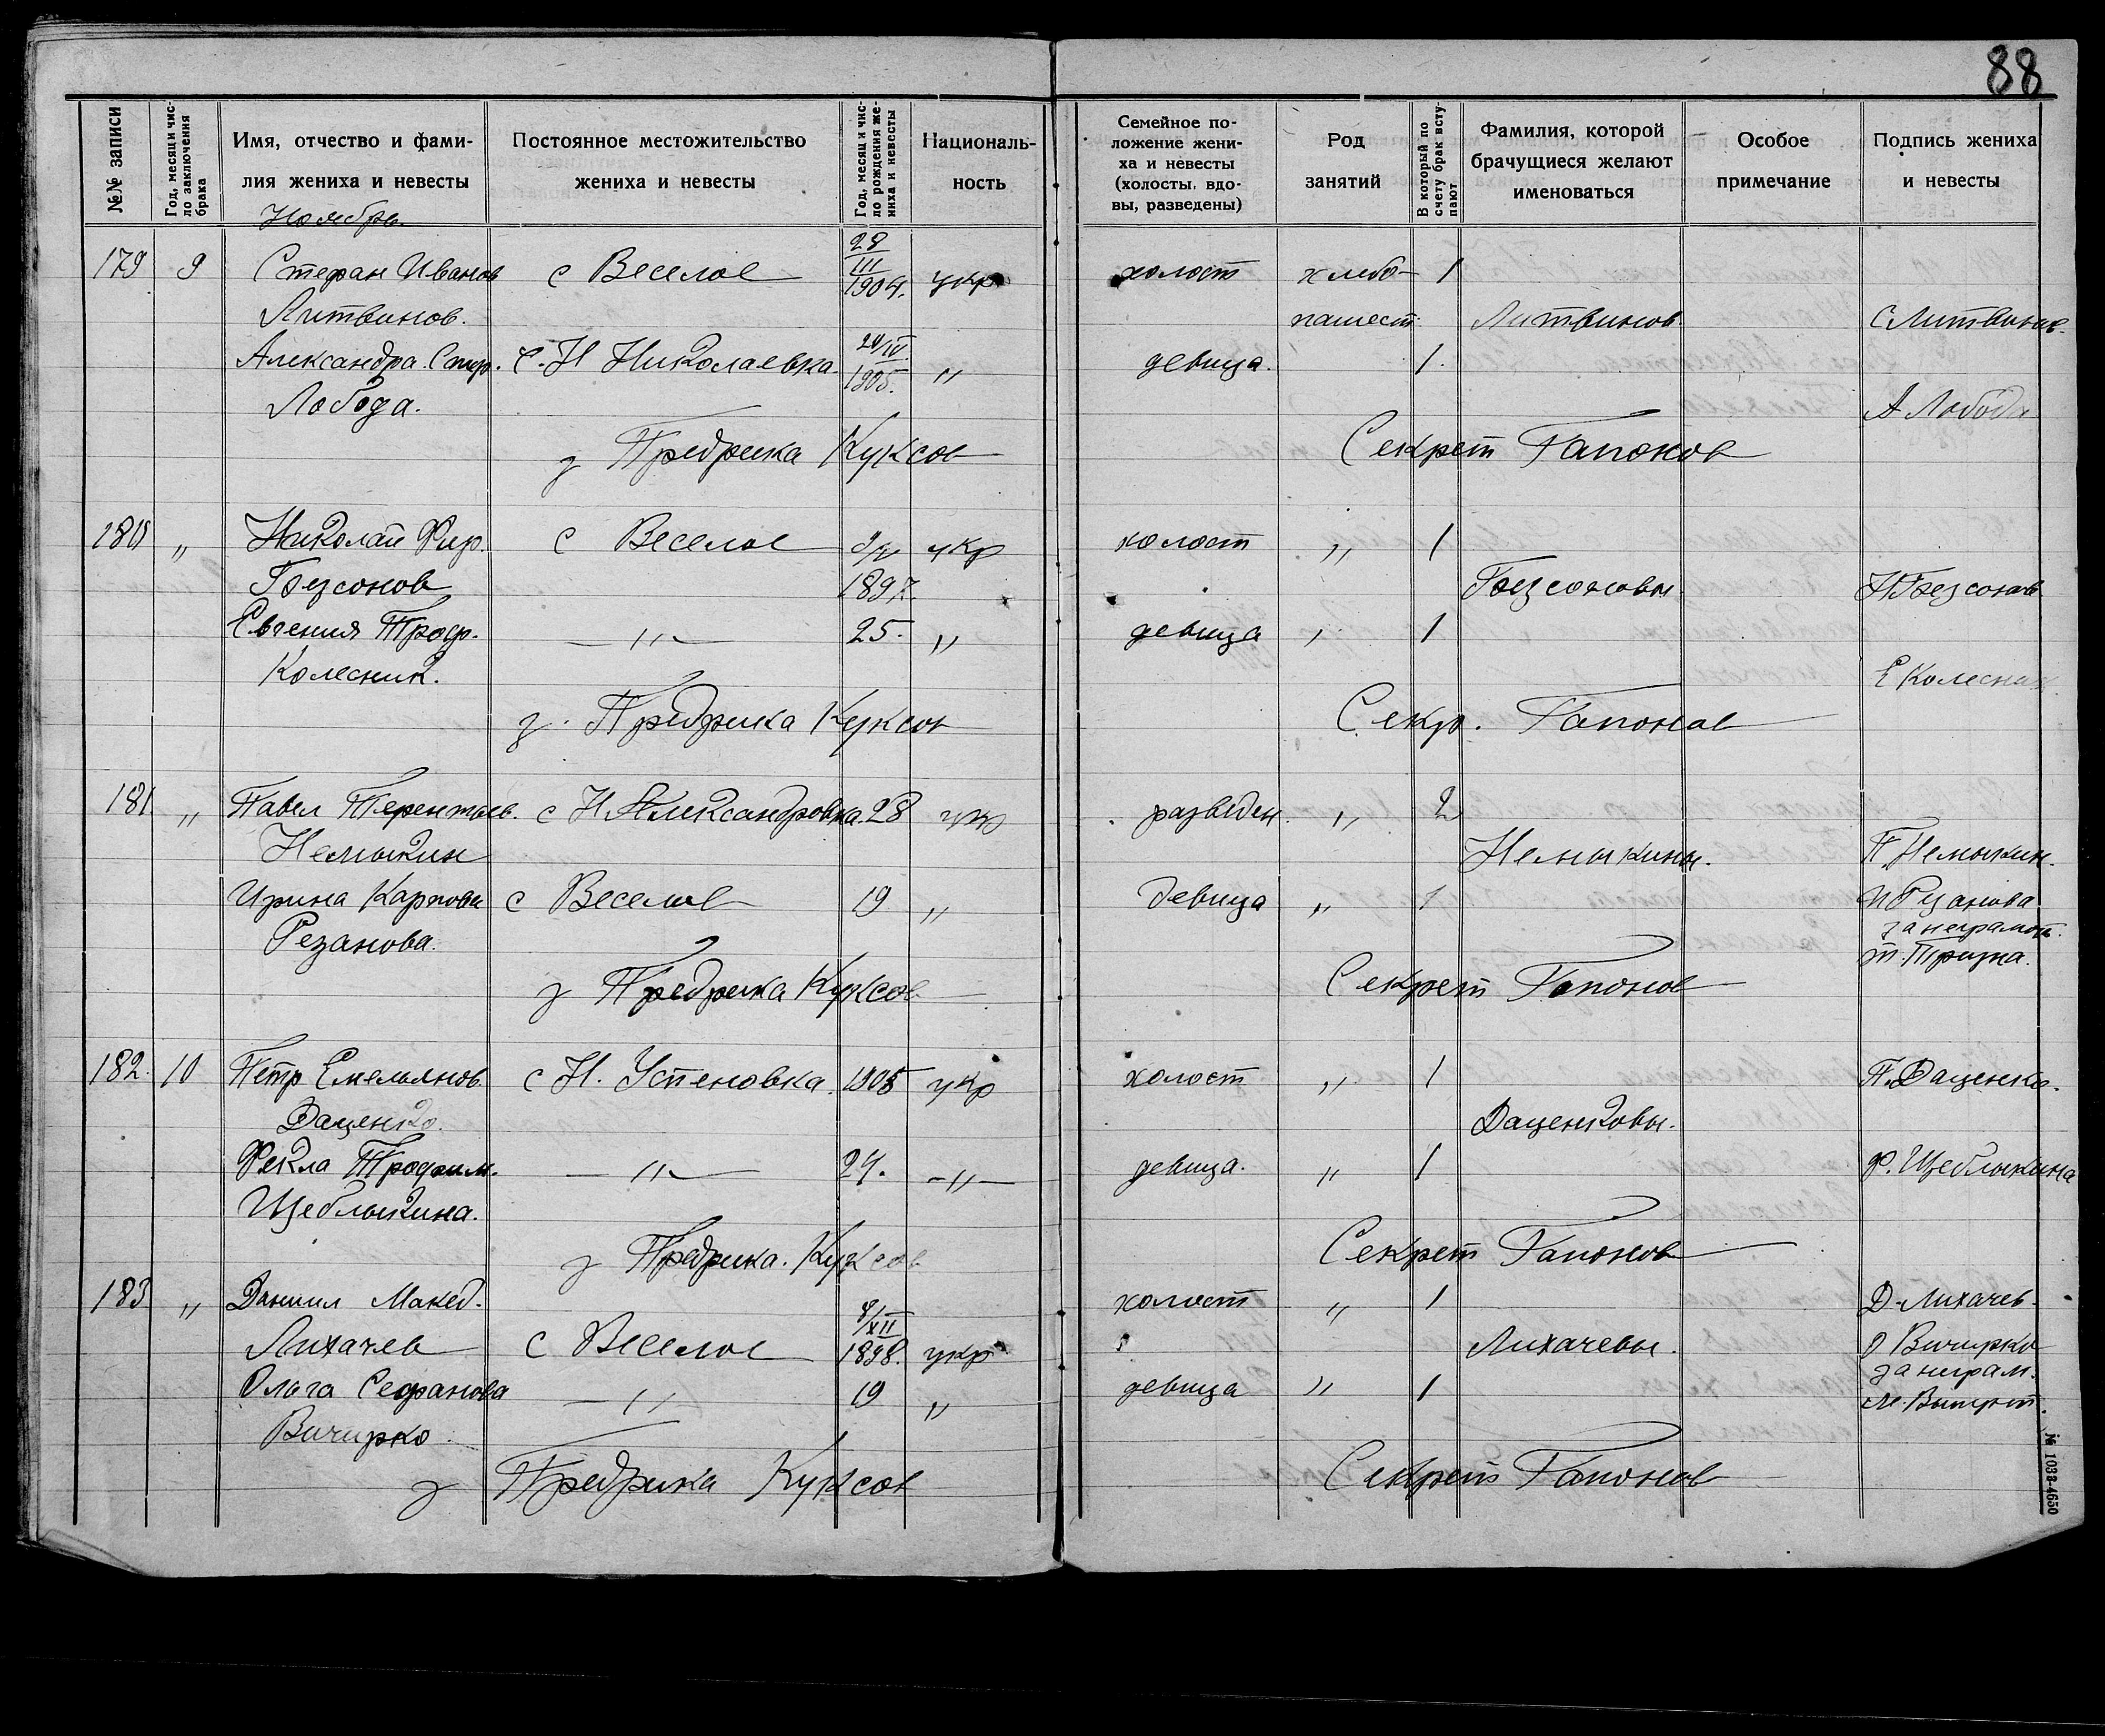 88
№№ записи
Год, месяц и чис-
ло заключения
брака
Имя, отчество и фами-
лия жениха и невесты
Постоянное местожительство
жениха и невесты
Год, месяц и чис-
ло рождения же-
ниха и невесты
Националь-
ность
Семейное по-
ложение жени-
ха и невесты
(холосты, вдо-
вы, разведены)
Род
занятий
В который по
счету брак всту-
пают
Фамилия, которой
брачущиеся желают
именоваться
Особое
примечание
Подпись жениха
и невесты
Ноября
179 9 Стефан Иванов с Веселое 28/III 1904. укр холост хлебо- 1
Литвинов. пашест. Литвинов. С Литвинов.
Александра Стеф. с. Н Николаевка 24/IV 1905. " девица. 1.
Лобода. А Лобода
з Предрика Куксов Секрет Гапонов
180 " Николай Фир. с Веселое укр холост " 1
Безсонов 1897. Безсоновы. Н Безсонов
Евгения Троф. — " — 25. " девица " 1
Колесник. Е Колесник
з. Предрика Куксов Секр. Гапонов
181 " Павел Терентьев. с Н Александровка 28 укр разведен. " 2
Немыкин Немыкины. П. Немыкин.
Ирина Карпова с Веселое 19 " девица " 1 И Резанова
Резанова. за неграмот.
т. Призна.
з Предрика Куксов Секрет Гапонов
182. 10 Петр Емельянов. с Н. Успеновка. 1905 укр холост " 1 П. Даценко.
Даценко. Даценковы.
Фекла Трофим. — " — 24. — " — девица. " 1 Ф. Щеблыкина
Щеблыкина.
з Предрика. Куксов Секрет Гапонов
183 " Даниил Макед. холост " 1 Д. Лихачев.
Лихачев с Веселое 8/XII 1898. укр Лихачевы. О Вичирко
за неграм.
Ольга Сефанова — " 19 " девица " 1 М.
Вичирко
з Предрика Куксов Секрет Гапонов
№ 1038-4650